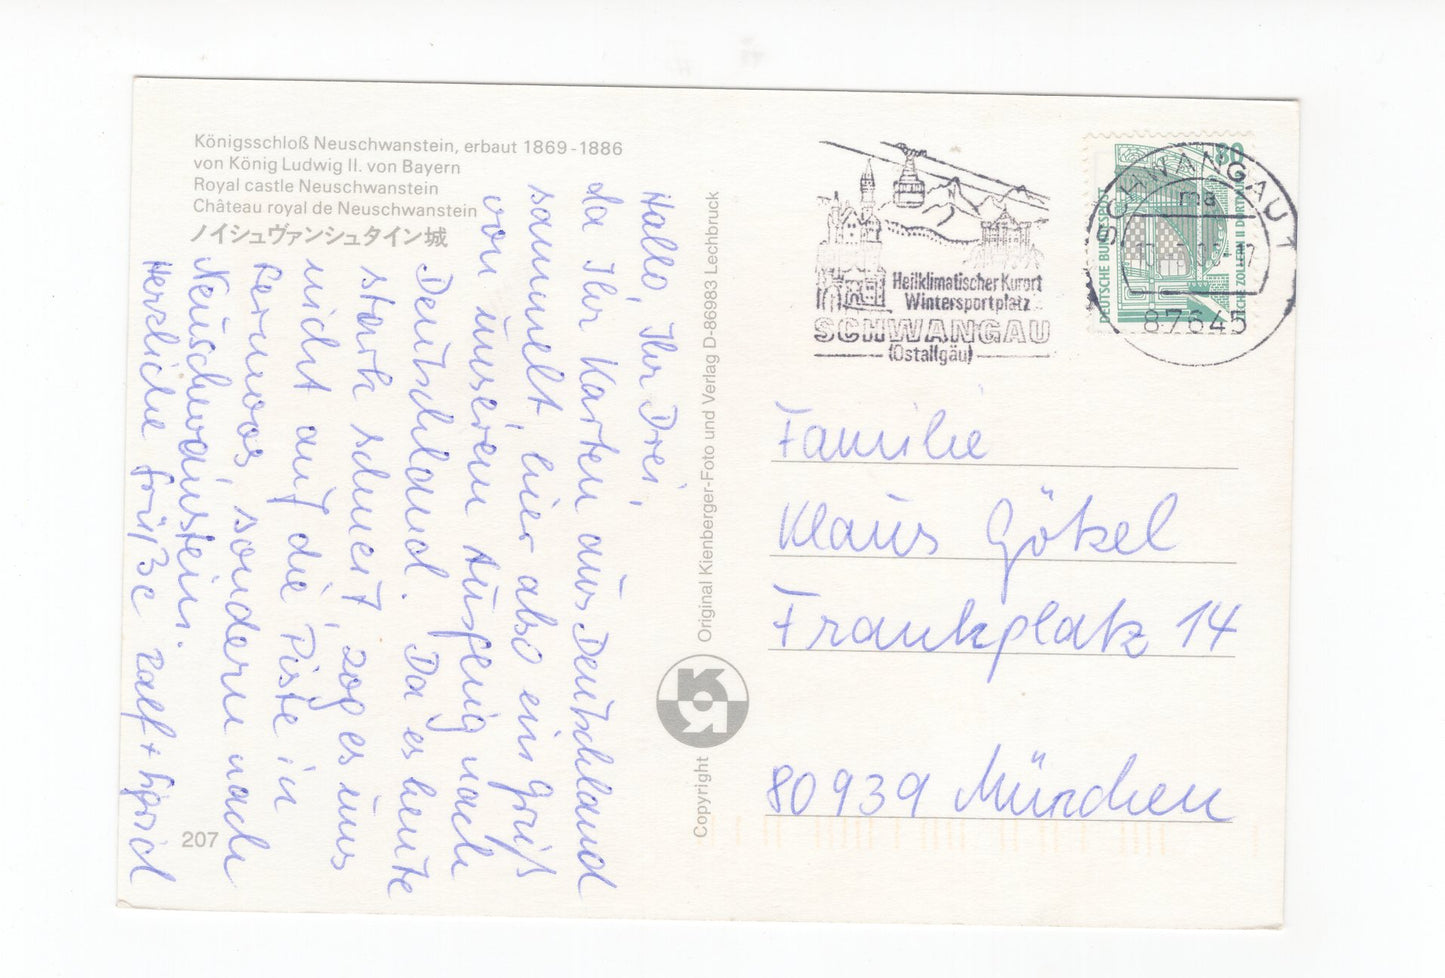 Königsschloß Neuschwanstein, erbaut 1869-1886
von König Ludwig II. von Bayern
Royal castle Neuschwanstein
Château royal de Neuschwanstein
ノイシュヴァンシュタイン城
Hallo, Ihr Drei,
da Ihr Karten aus Deutschland
sammelt, hier also ein Gruß
von unserem Ausflug nach
Deutschland. Da es heute
stark schneit, zog es uns
nicht auf die Piste in
Lermoos sondern nach
Neuschwanstein.
Herzliche Grüße Ralf +
207
Original Kienberger-Foto und Verlag D-86983 Lechbruck
Copyright
Heilklimatischer Kurort
Wintersportplatz
SCHWANGAU
(Ostallgäu)
80
DEUTSCHE BUNDESPOST
ZECHE ZOLLERN II DORTMUND
SCHWANGAU 1
ma
87645
Familie
Klaus Götzel
Frankplatz 14
80939 München